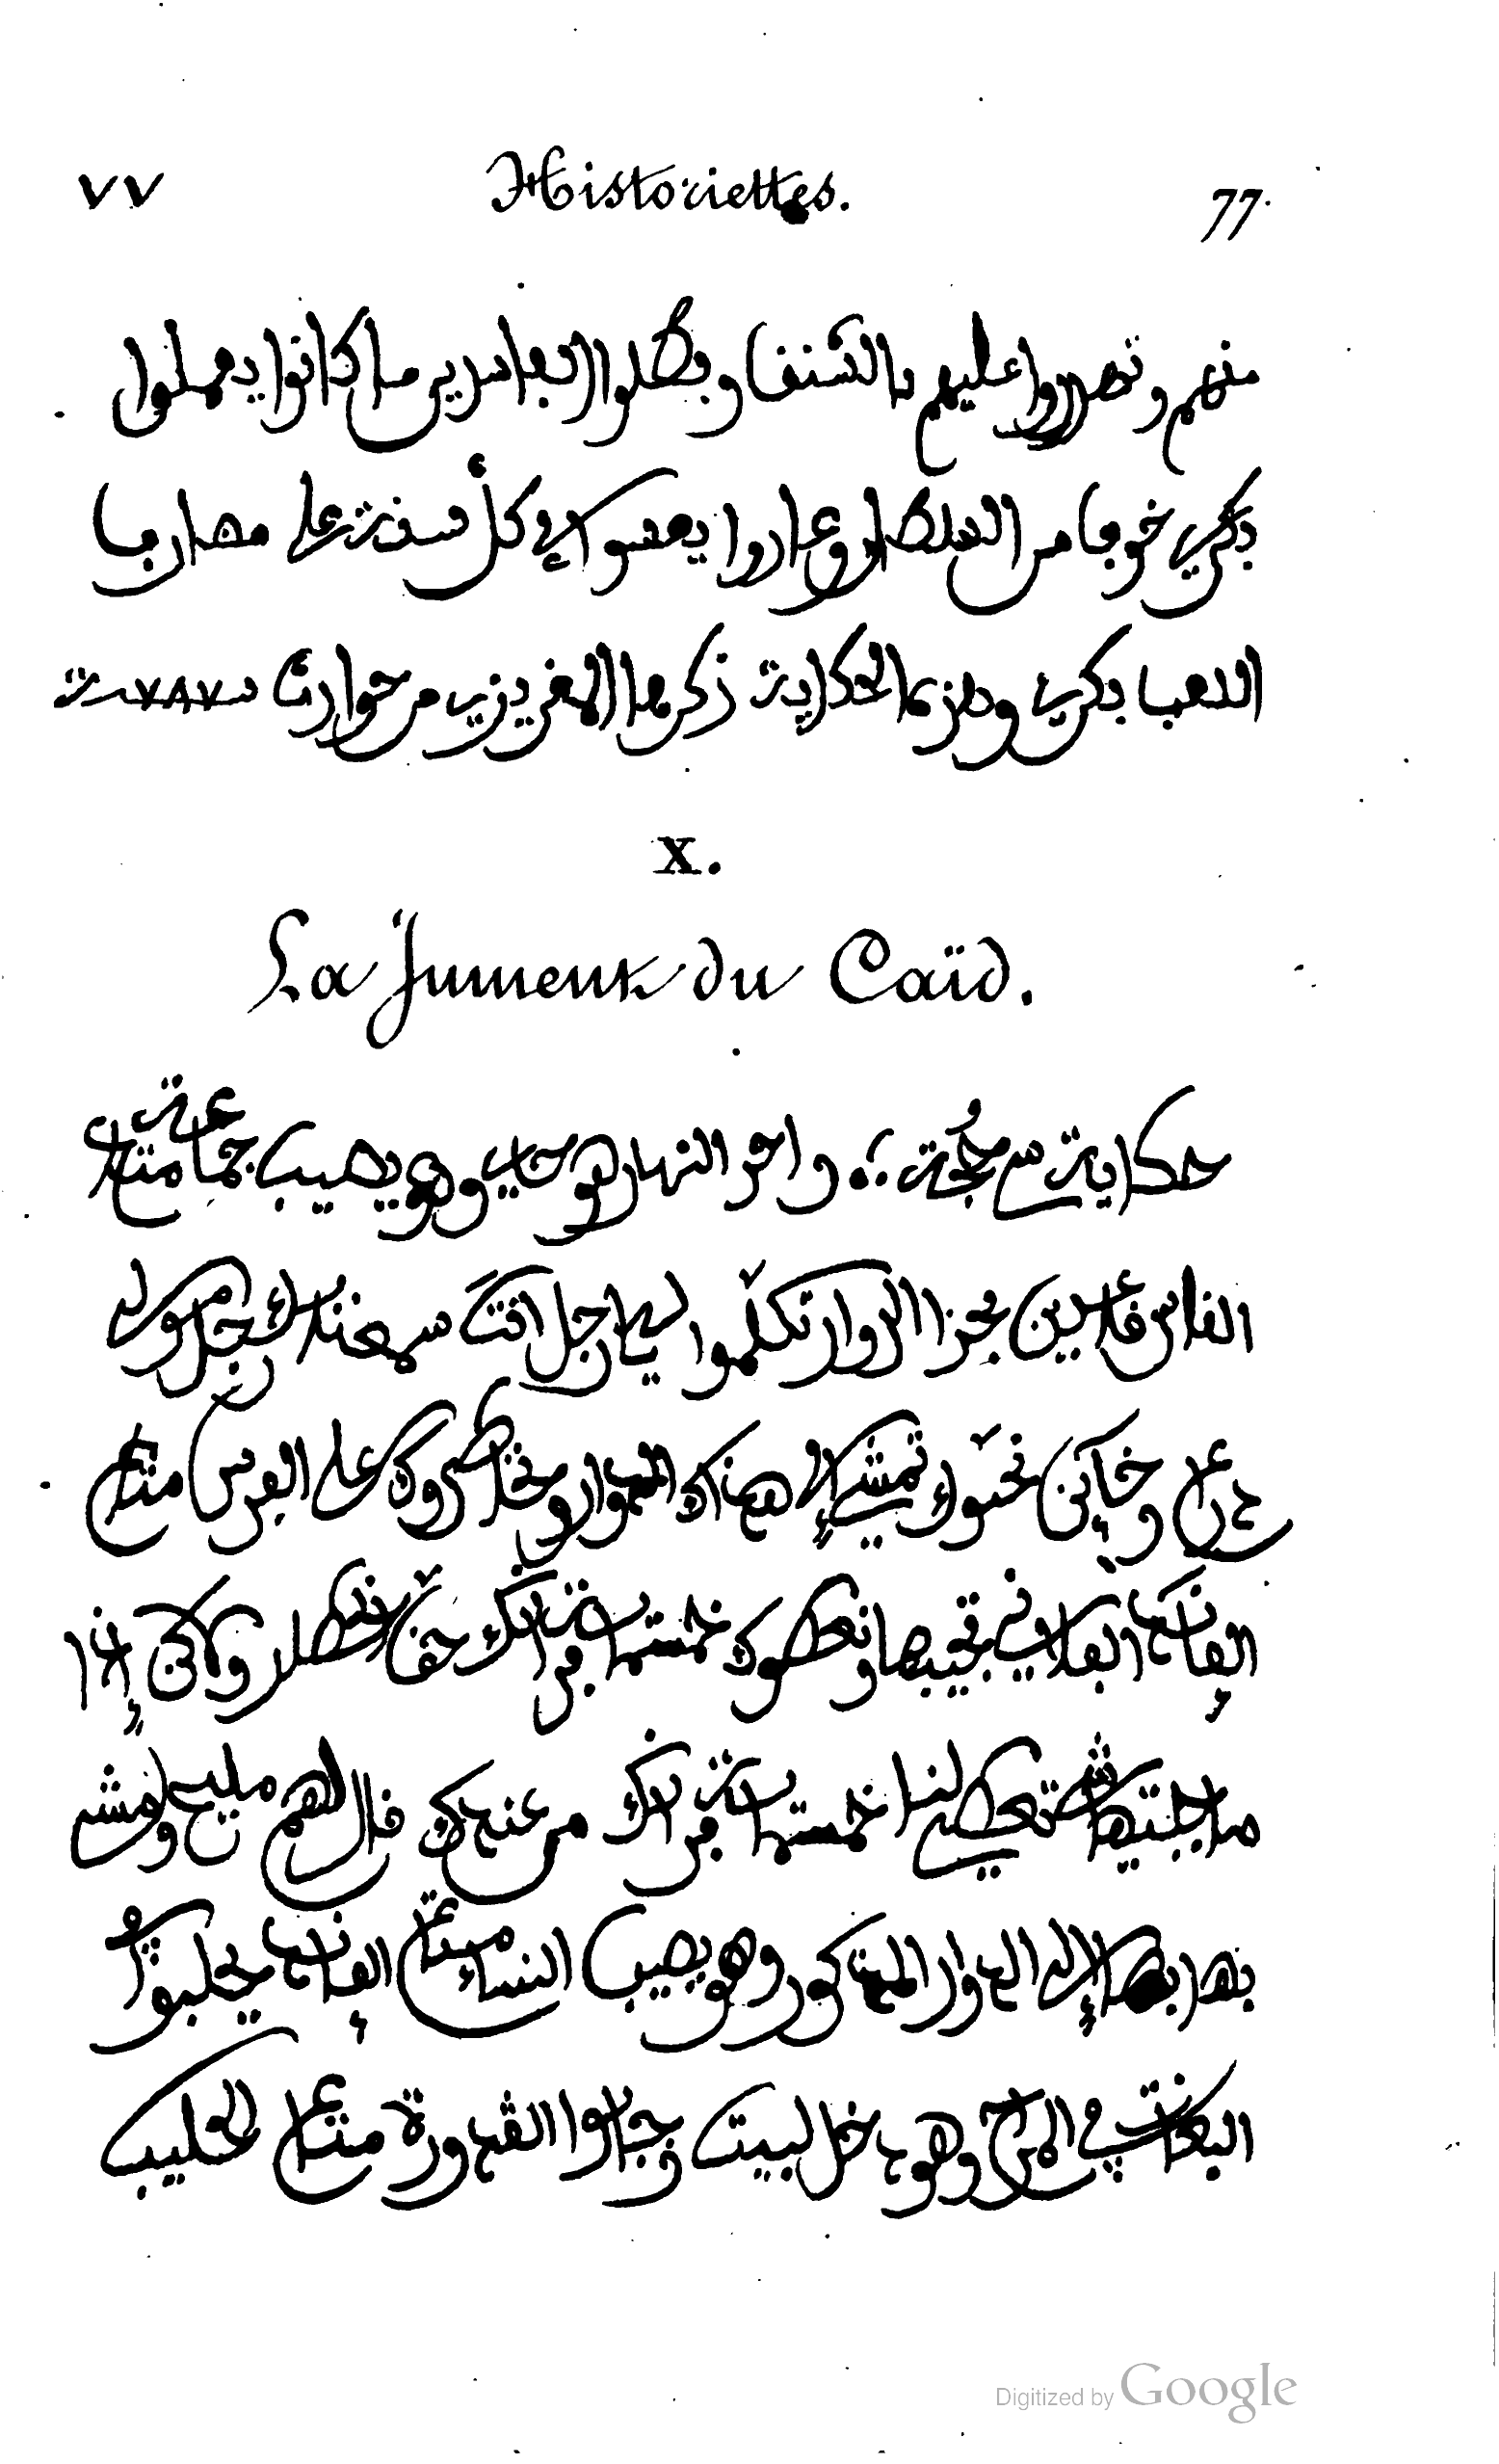 ٧٧ Historiettes. 77.
منهم وتصدروا عليهم بالشنفا وبطلوا الفاس من ما كانوا يعملوا
بكري خوفا من السلطان وعادوا يمسوا في كل سنة على
اللعبا بكري وهذه الحكاية ذكرها المفريزي من حوادث سـ٧٨٧ـنة
X.
La Jument du Caïd.
حكاية واحد النهار هو جاي وهو يصيب جماعة متاع
الناس قاعدين بحذا الدوار تكلموا ليه يا راجل انت سمعناك رجل
دراع وخاين نحبوك تمشي الى هذاك الدوار ونخاطروك على الفرس متاع
القايد الفلاني تجيبها ونعطوك خمسماية فرانك حقا ولكن اذا
ما جبتهاش تعطي لنا خمسماية فرانك من عندك قال لهم مليح ومشى
الى الدوار المذكور وهو يصيب النساء متاع القايد يحلبوا
البكرات في المراح وهو دخل لبيت وجابوا القدورة متاع الحليب
Digitized by Google